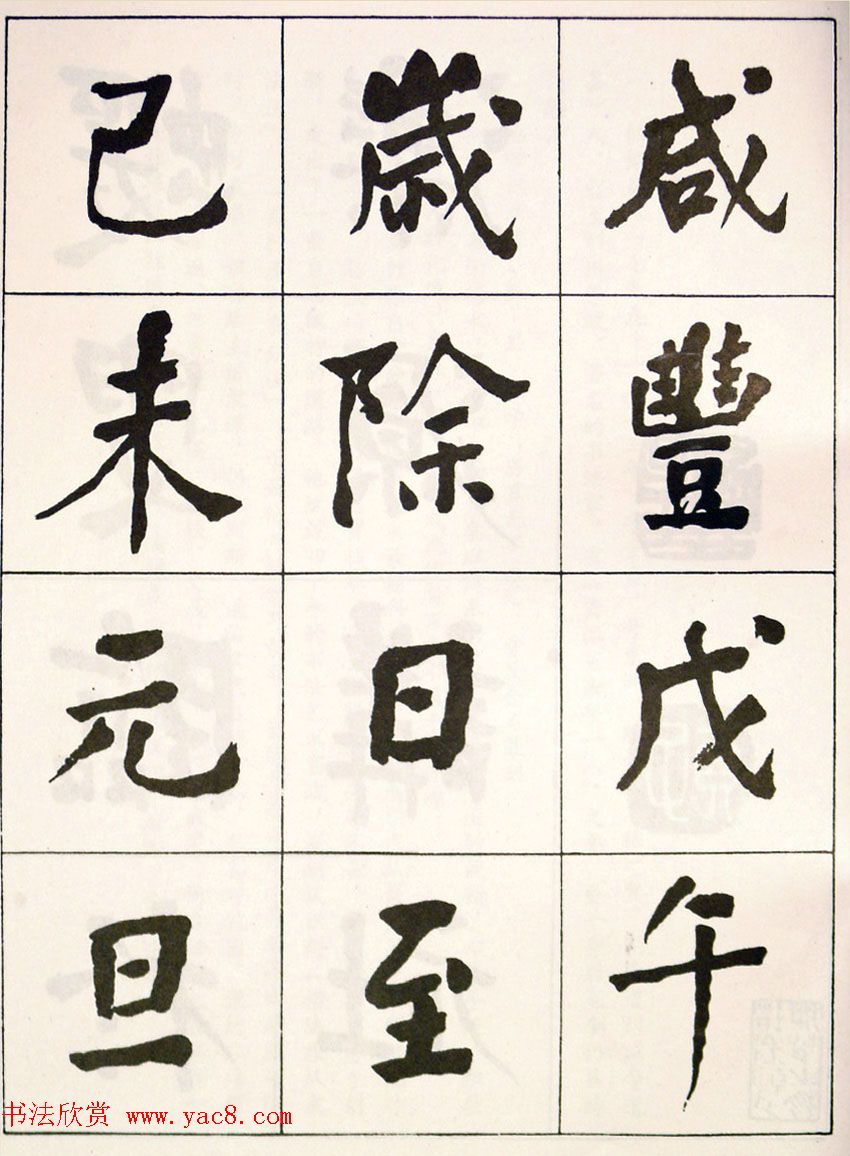 咸豐戊午
歲除日至
己未元旦
书法欣赏 www.yac8.com